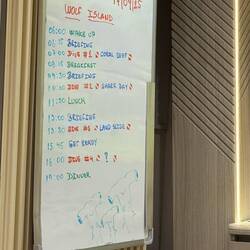 14/09/25
WOLF ISLAND
06:00 WAKE UP
06:15 BRIEFING
07:00 DIVE #1 CORAL DEPT
08:15 BREAKFAST
09:30 BRIEFING
10:00 DIVE #2 SHARK BAY
11:30 LUNCH
13:00 BRIEFING
13:30 DIVE #3 LAND SLIDE
15:45 GET READY
16:00 DIVE #4 ?
19:00 DINNER